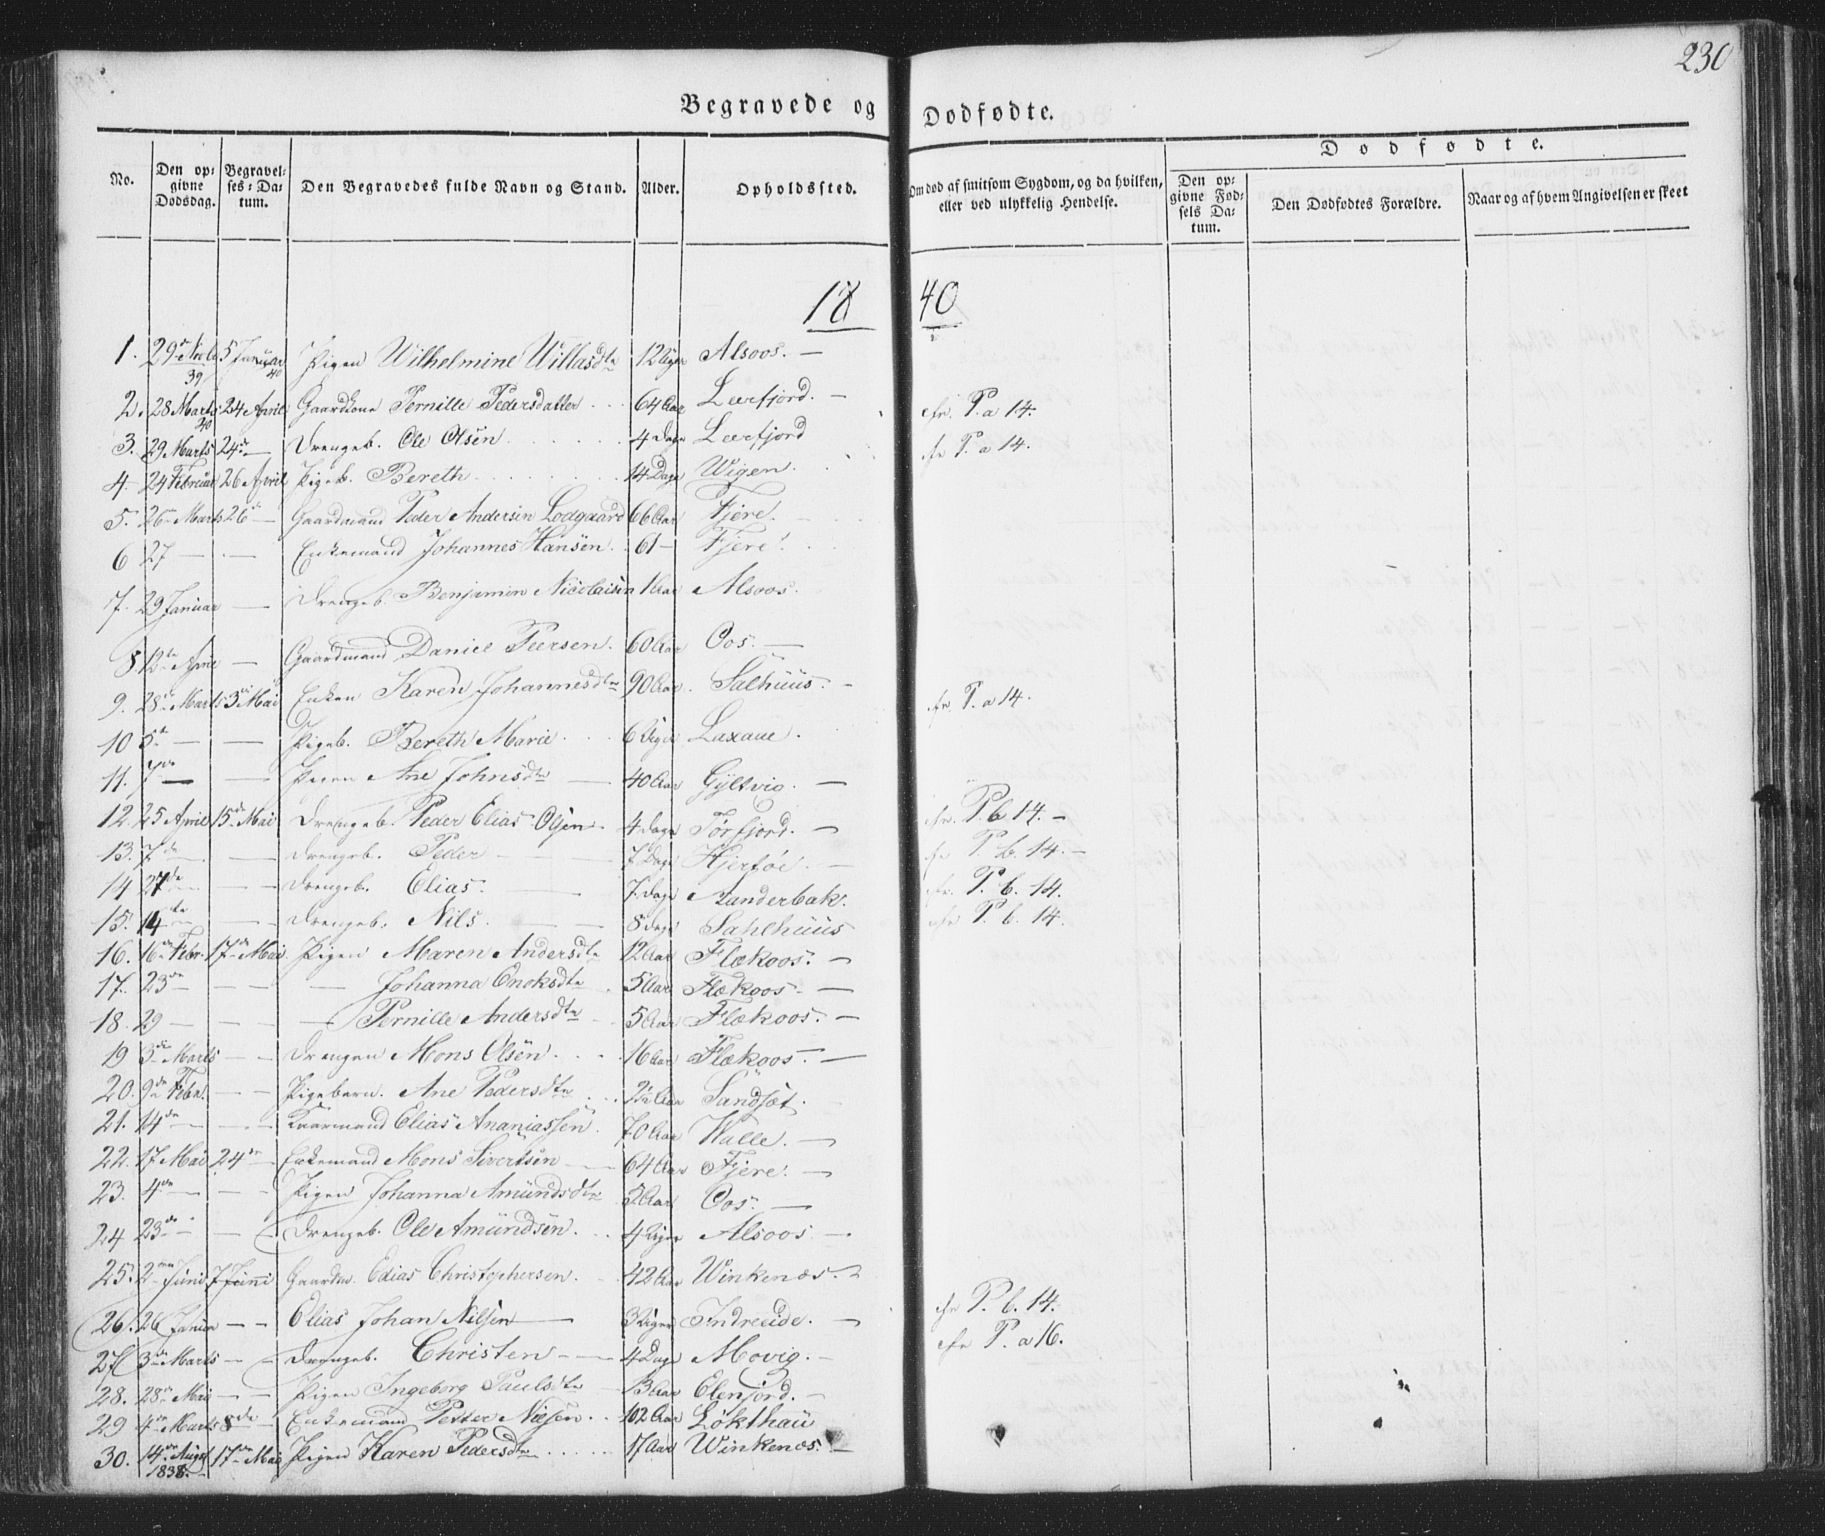 230
Begravede og Dødfødte.
No. Den opgivne Dødsdag. Begravelses-Datum. Den Begravedes fulde Navn og Stand. Alder. Opholdssted. Om død af smitsom Sygdom, og da hvilken, eller ved ulykkelig Hendelse. Dødfødte. Den opgivne Fødsels Datum. Den Dødfødtes Forældre. Naar og af hvem Angivelsen er skeet
1840
1. 29 39 5 Januar 40 Pigen Wilhelmine Willasdtr 12 Uger Alsoos. —
2. 28 Marts 40 24 April Gaardkone Pernille Pedersdatter 64 Aar Leerfjord. — cfr. P. a 14.
3. 29 Marts 24 — Drengeb. Ole Olsen 4 Dage Leerfjord cfr P. a 14.
4. 24 Februar 26 April Pigeb. Bereth 14 Dage Wigen.
5. 26 Marts 26 — Gaardmand Peder Andersen Lodgaard 66 Aar Fjere.
6 27 — — Enkemand Johannes Hansen. 61 — Fjere.
7. 29 Januar — Drengeb. Benjamin Nicolaisen 1 Aar Alsoos.
8. 12te April — Gaardmand Daniel Peersen. 60 Aar Oos. —
9. 28 Marts 3 Mai Enken Karen Johannesdtr 90 Aar. Salhuus. — cfr. P. a 14.
10 5te — — Pigeb. Bereth Marie 6 Uger Luxaae.
11. 7de — — Pigen Ane Johnsdtr — 40 Aar Gyltvig. —
12. 25 April 15de Mai Drengeb. Peder Elias Olsen. 4 Dage Tørfjord. — cfr. P. b 14. —
13. 7de — — Drengeb. Peder — 7 Dage Hjertøe. — cfr P. b. 14. —
14 27de — — Drengeb. Elias. — 7 Dage Randerbak. cfr. P. b. 14.
15. 14te — — Drengeb. Nils. — 8 Dage Sahlhuus cfr P. b. 14.
16. 16de Febr. 17de Mai Pigen Maren Andersdtr 12 Aar Flækoos. —
17. 23de — — — Johanna Enoksdtr 5 Aar Flækoos. —
18. 29 — — — — Pernille Andersdtr 5 Aar Flækoos. —
19 3de Marts — — Drengen Mons Olsen. 16 Aar Flækoos. —
20. 9de Febr. — — Pigebarn. Ane Pedersdtr Aar Sandsøt.
21. 14de — — — Kaarmand Elias Ananiassen. 70 Aar Walle. —
22. 17 Mai 24de — Enkemand Mons Sivertsen — 64 Aar Fjere. —
23. 4de — — — Pigen Johanna Amundsdtr 5 Aar Oos. —
24 23de — — — Drengeb. Ole Amundsen. 4 Uger Alsoos. —
25. 2den Juni 7 Juni Gaardm. Edias Christophersen. 42 Aar Winkenæs. —
26. 26 Januar — — Elias Johan Nilsen — 3 Uger Indreeide. — cfr P. b. 14.
27 3de Marts — — Drengeb. Christen — 4 Dage Movig. — cfr P. a 16.
28. 28de Mai — — Pigen Ingeborg Paulsdtr 13 Aar Elenjord. —
29 4de Marts 8de — Enkemand Petter Nilsen. 102 Aar Løkthau
30. 14de August 1838. 17de Mai Pigen Karen Pedersdtr 17 Aar Winkenæs. —